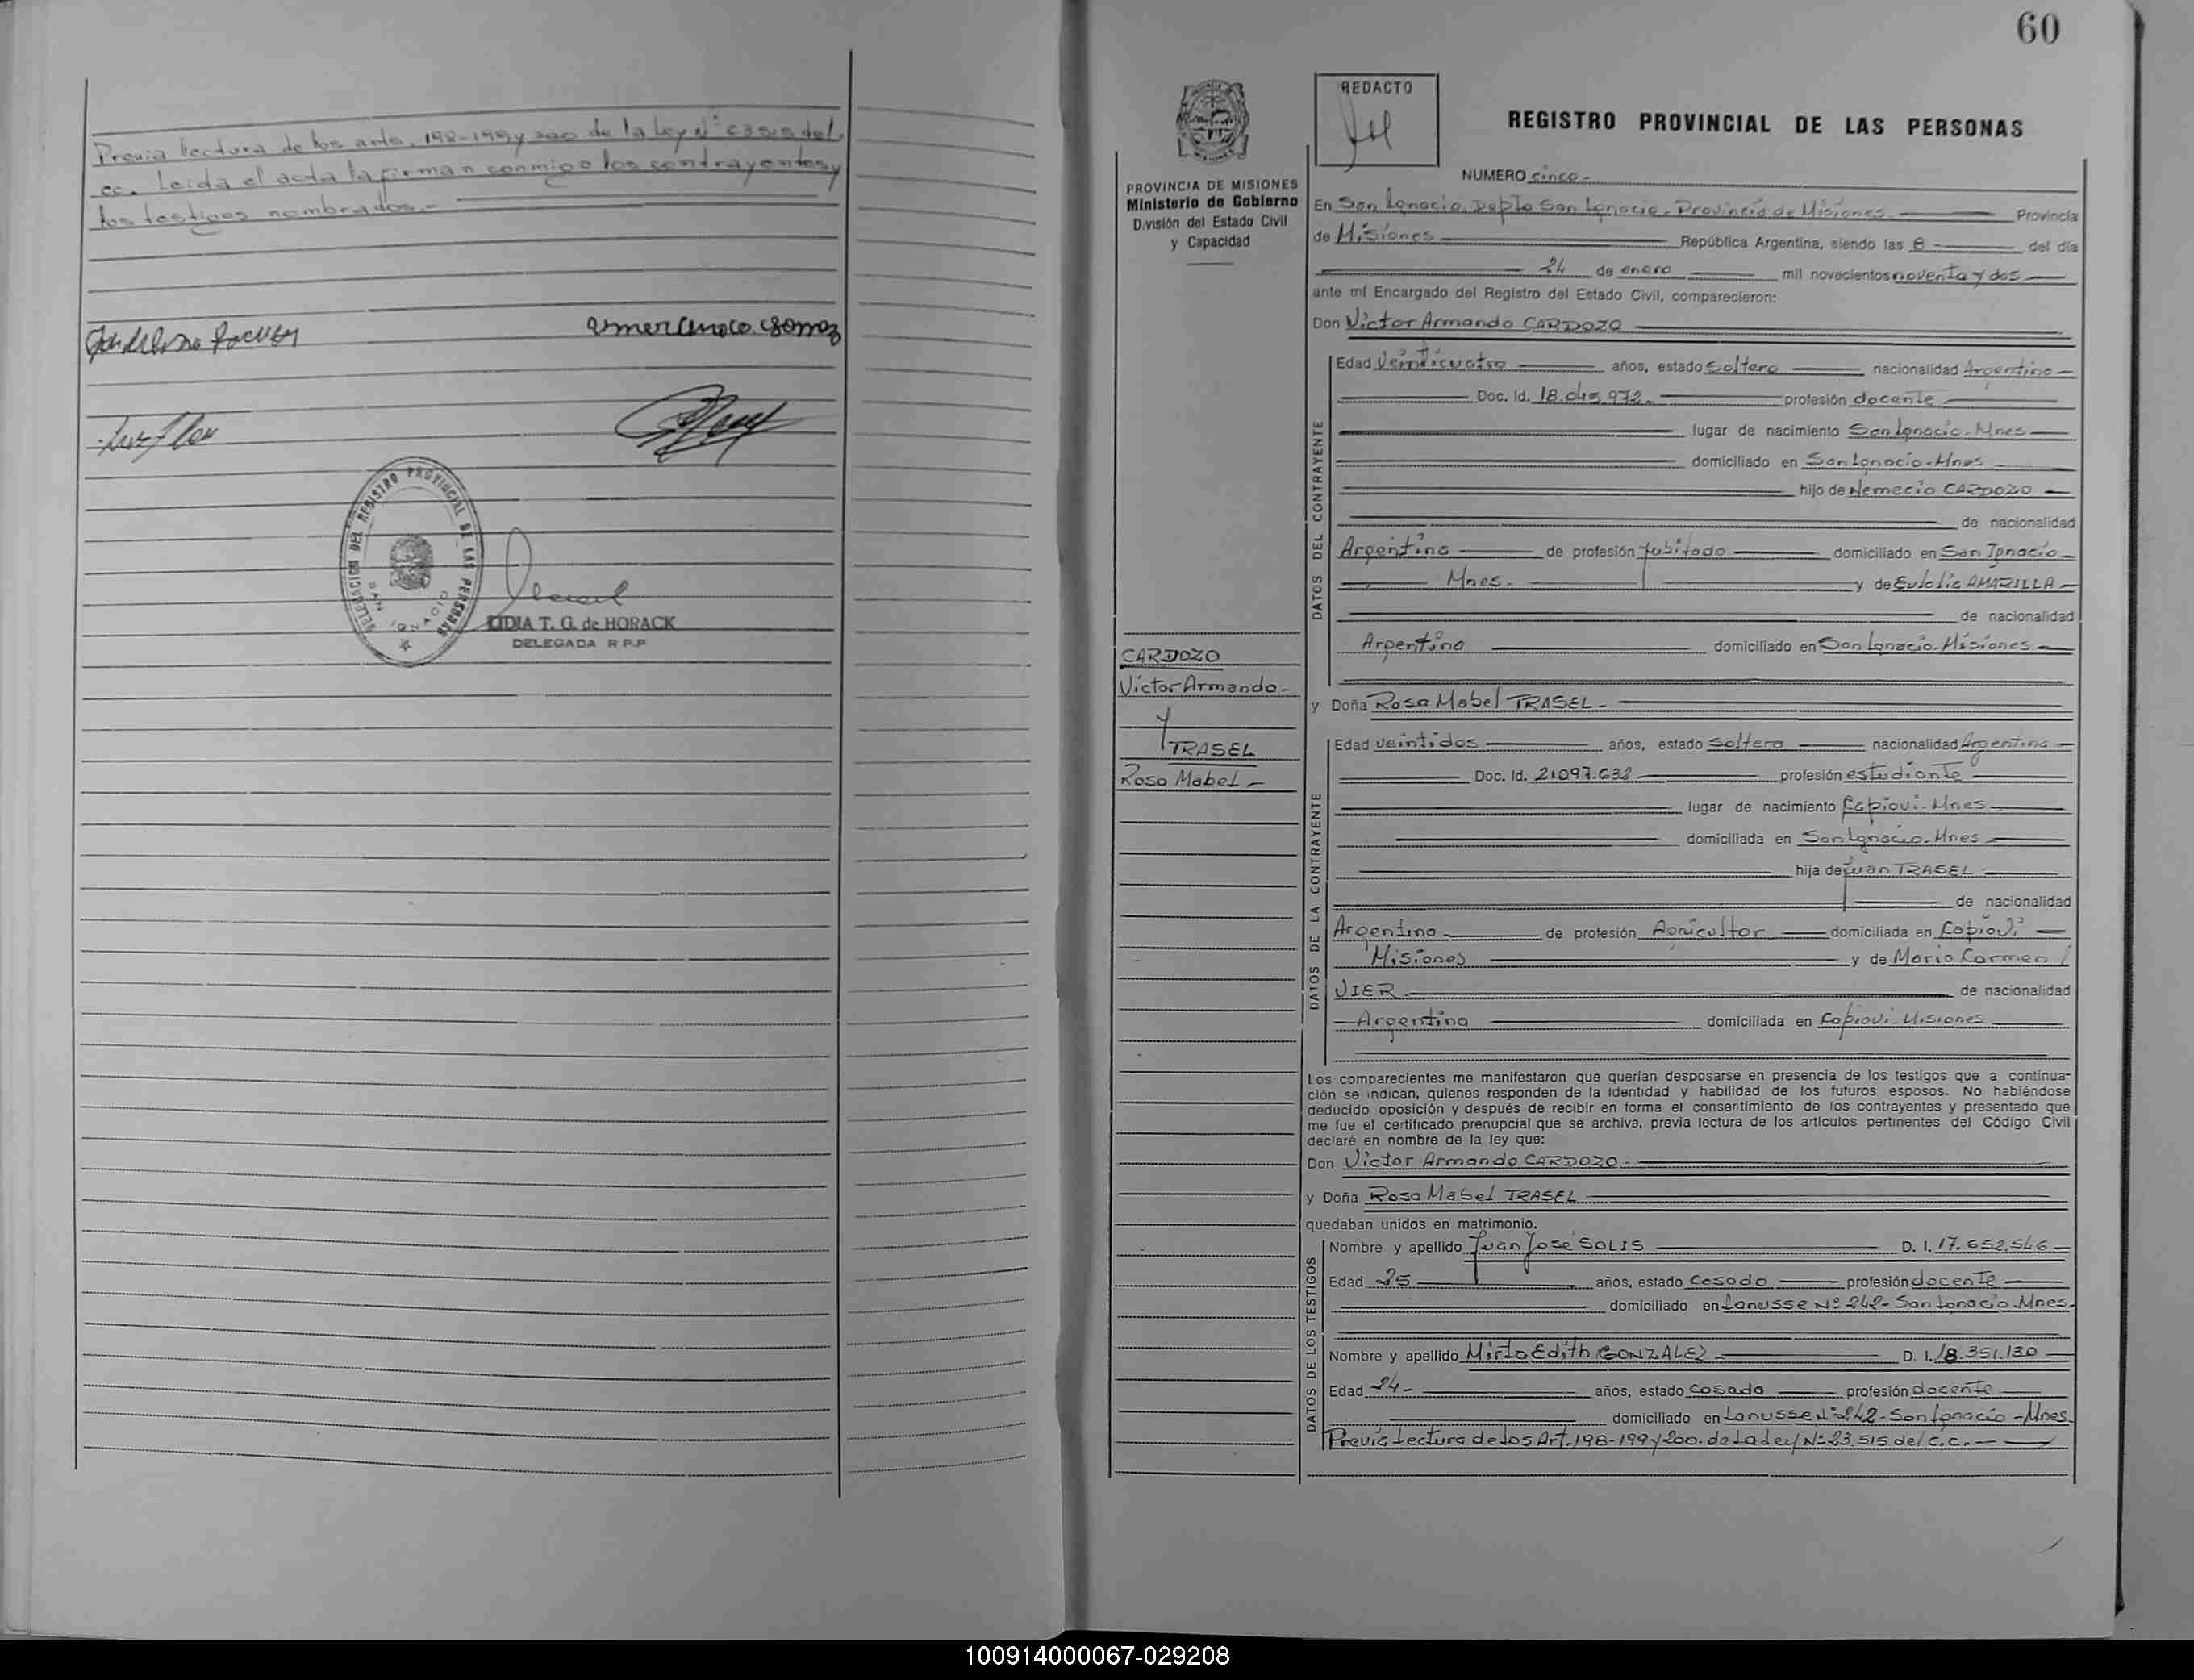 Previa lectura de los arts. 198-199 y 200 de la Ley Nº 23515 del
cc. Leida el acta la firman conmigo los contrayentes y
los testigos nombrados.-
DELEGACION DEL REGISTRO PROVINCIAL DE LAS PERSONAS
SAN IGNACIO
LIDIA T. G. de HORACK
DELEGADA R P.P
60
REDACTO
REGISTRO PROVINCIAL DE LAS PERSONAS
MISIONES
PROVINCIA DE MISIONES
Ministerio de Gobierno
División del Estado Civil
y Capacidad
CARDOZO
Victor Armando-
y
TRASEL
Rosa Mabel-
NUMERO cinco-
En San Ignacio, Depto San Ignacio- Provincia de Misiones Provincia
de Misiones República Argentina, siendo las 8 - del día
24 de enero mil novecientos noventa y dos
ante mí Encargado del Registro del Estado Civil, comparecieron:
Don Victor Armando CARDOZO
DATOS DEL CONTRAYENTE
Edad Veinticuatro años, estado soltero nacionalidad Argentino
Doc. Id. 18.045.972.- profesión docente
lugar de nacimiento San Ignacio- Mnes
domiciliado en San Ignacio-Mnes
hijo de Nemecio CARDOZO
de nacionalidad
Argentina de profesión Jubilado domiciliado en San Ignacio
Mnes- y de Eulalia AMARILLA
de nacionalidad
Argentina domiciliado en San Ignacio- Misiones
y Doña Rosa Mabel TRASEL-
DATOS DE LA CONTRAYENTE
Edad veintidos años, estado soltera nacionalidad Argentina
Doc. Id. 21.097.638 profesión estudiante
lugar de nacimiento Capiovi- Mnes
domiciliada en San Ignacio- Mnes
hija de Juan TRASEL
de nacionalidad
Argentina de profesión Agricultor domiciliada en Capiovi
Misiones y de Maria Carmen /
VIER de nacionalidad
Argentina domiciliada en Capiovi- Misiones
Los comparecientes me manifestaron que querían desposarse en presencia de los testigos que a continua-
ción se indican, quienes responden de la identidad y habilidad de los futuros esposos. No habiéndose
deducido oposición y después de recibir en forma el consentimiento de los contrayentes y presentado que
me fue el certificado prenupcial que se archiva, previa lectura de los artículos pertinentes del Código Civil
declaré en nombre de la ley que:
Don Victor Armando CARDOZO-
y Doña Rosa Mabel TRASEL
quedaban unidos en matrimonio.
DATOS DE LOS TESTIGOS
Nombre y apellido Juan José SOLIS D. I. 17.652.546
Edad 25 años, estado Casado profesión docente
domiciliado en Lanusse Nº 242- San Ignacio- Mnes.
Nombre y apellido Mirta Edith GONZALEZ D. I. 18.351.130
Edad 24- años, estado Casada profesión docente
domiciliado en Lanusse Nº 242- San Ignacio -Mnes.
Previa lectura de los Art. 198-199 y 200. de la Ley Nº 23.515 del c.c.-
100914000067-029208